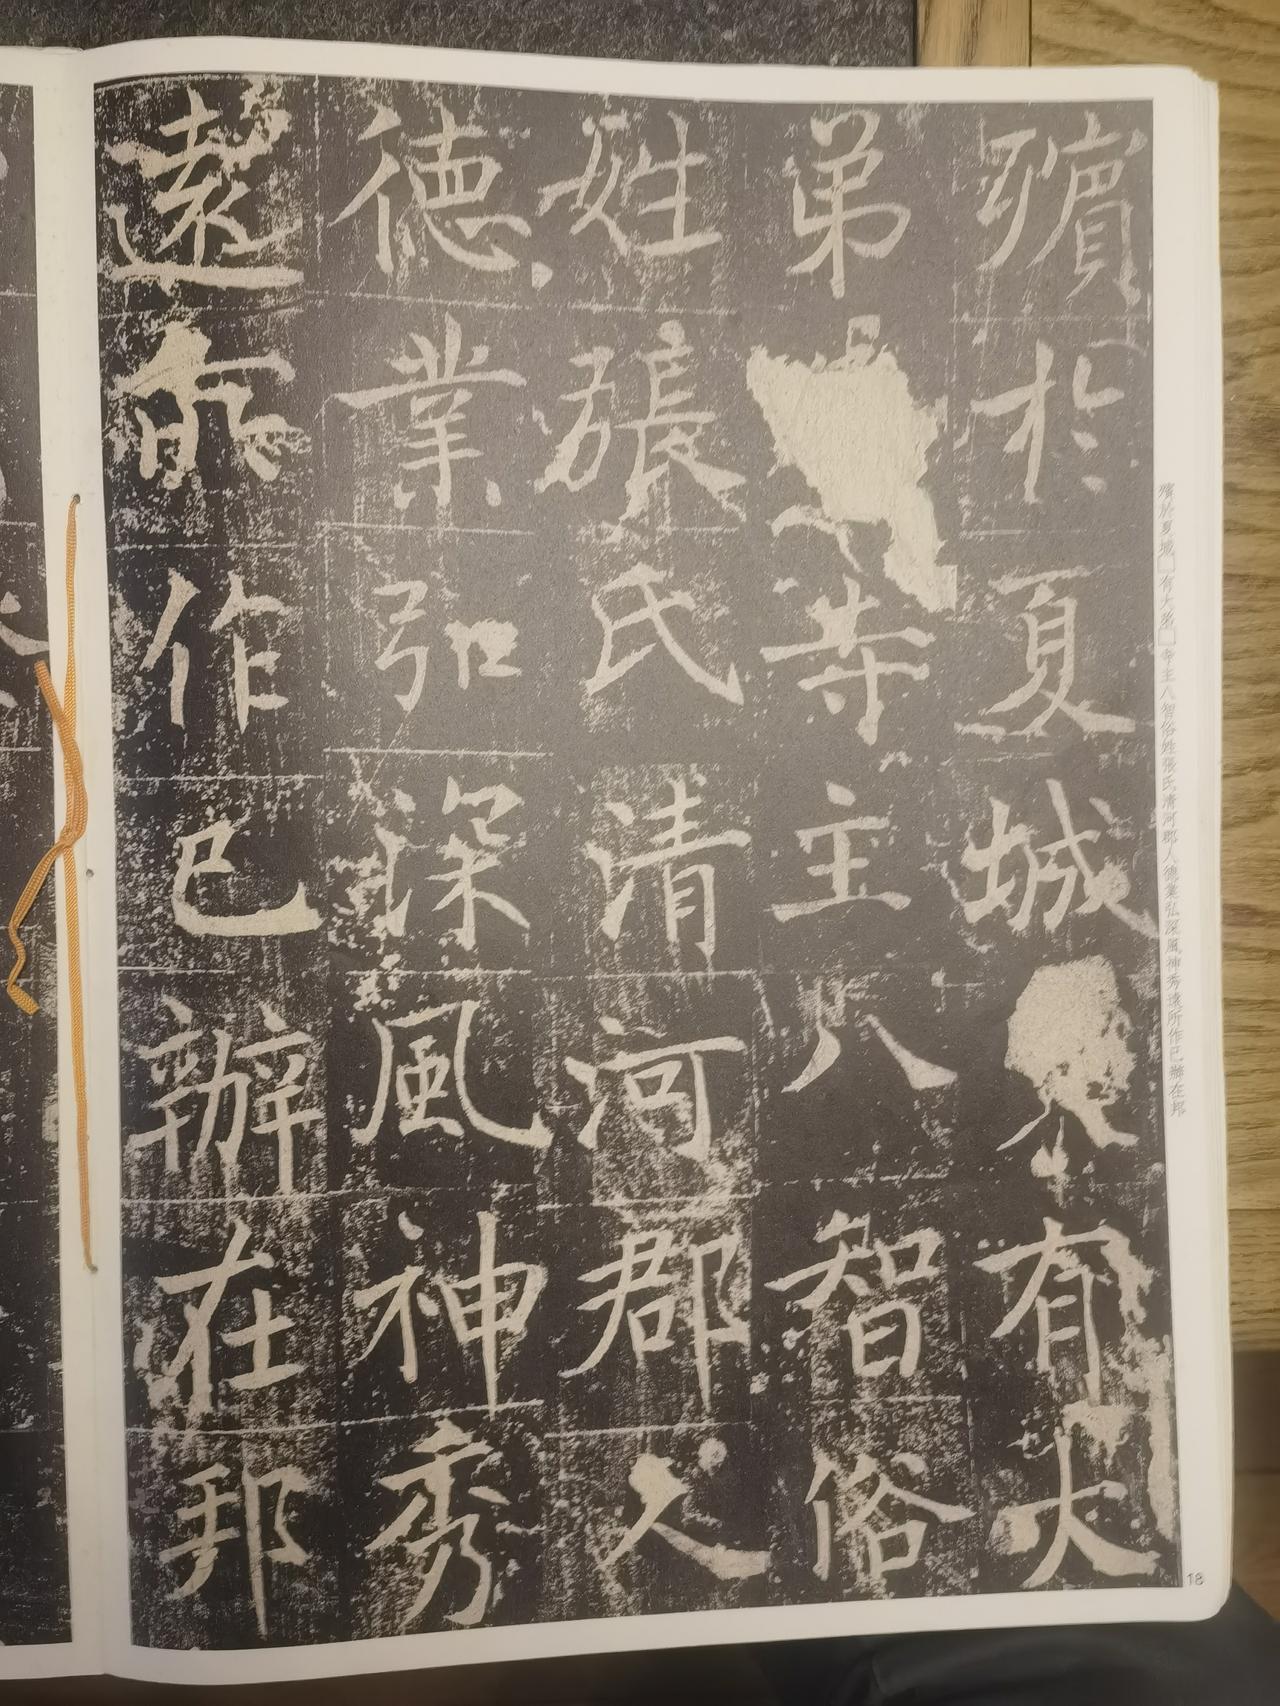 殯於夏城有大
弟寺主八智俗
姓張氏清河郡人
德業弘深風神秀
遠所作已辦在邦
殯於夏城□有大弟□寺主八智俗姓張氏清河郡人德業弘深風神秀遠所作已辦在邦
18